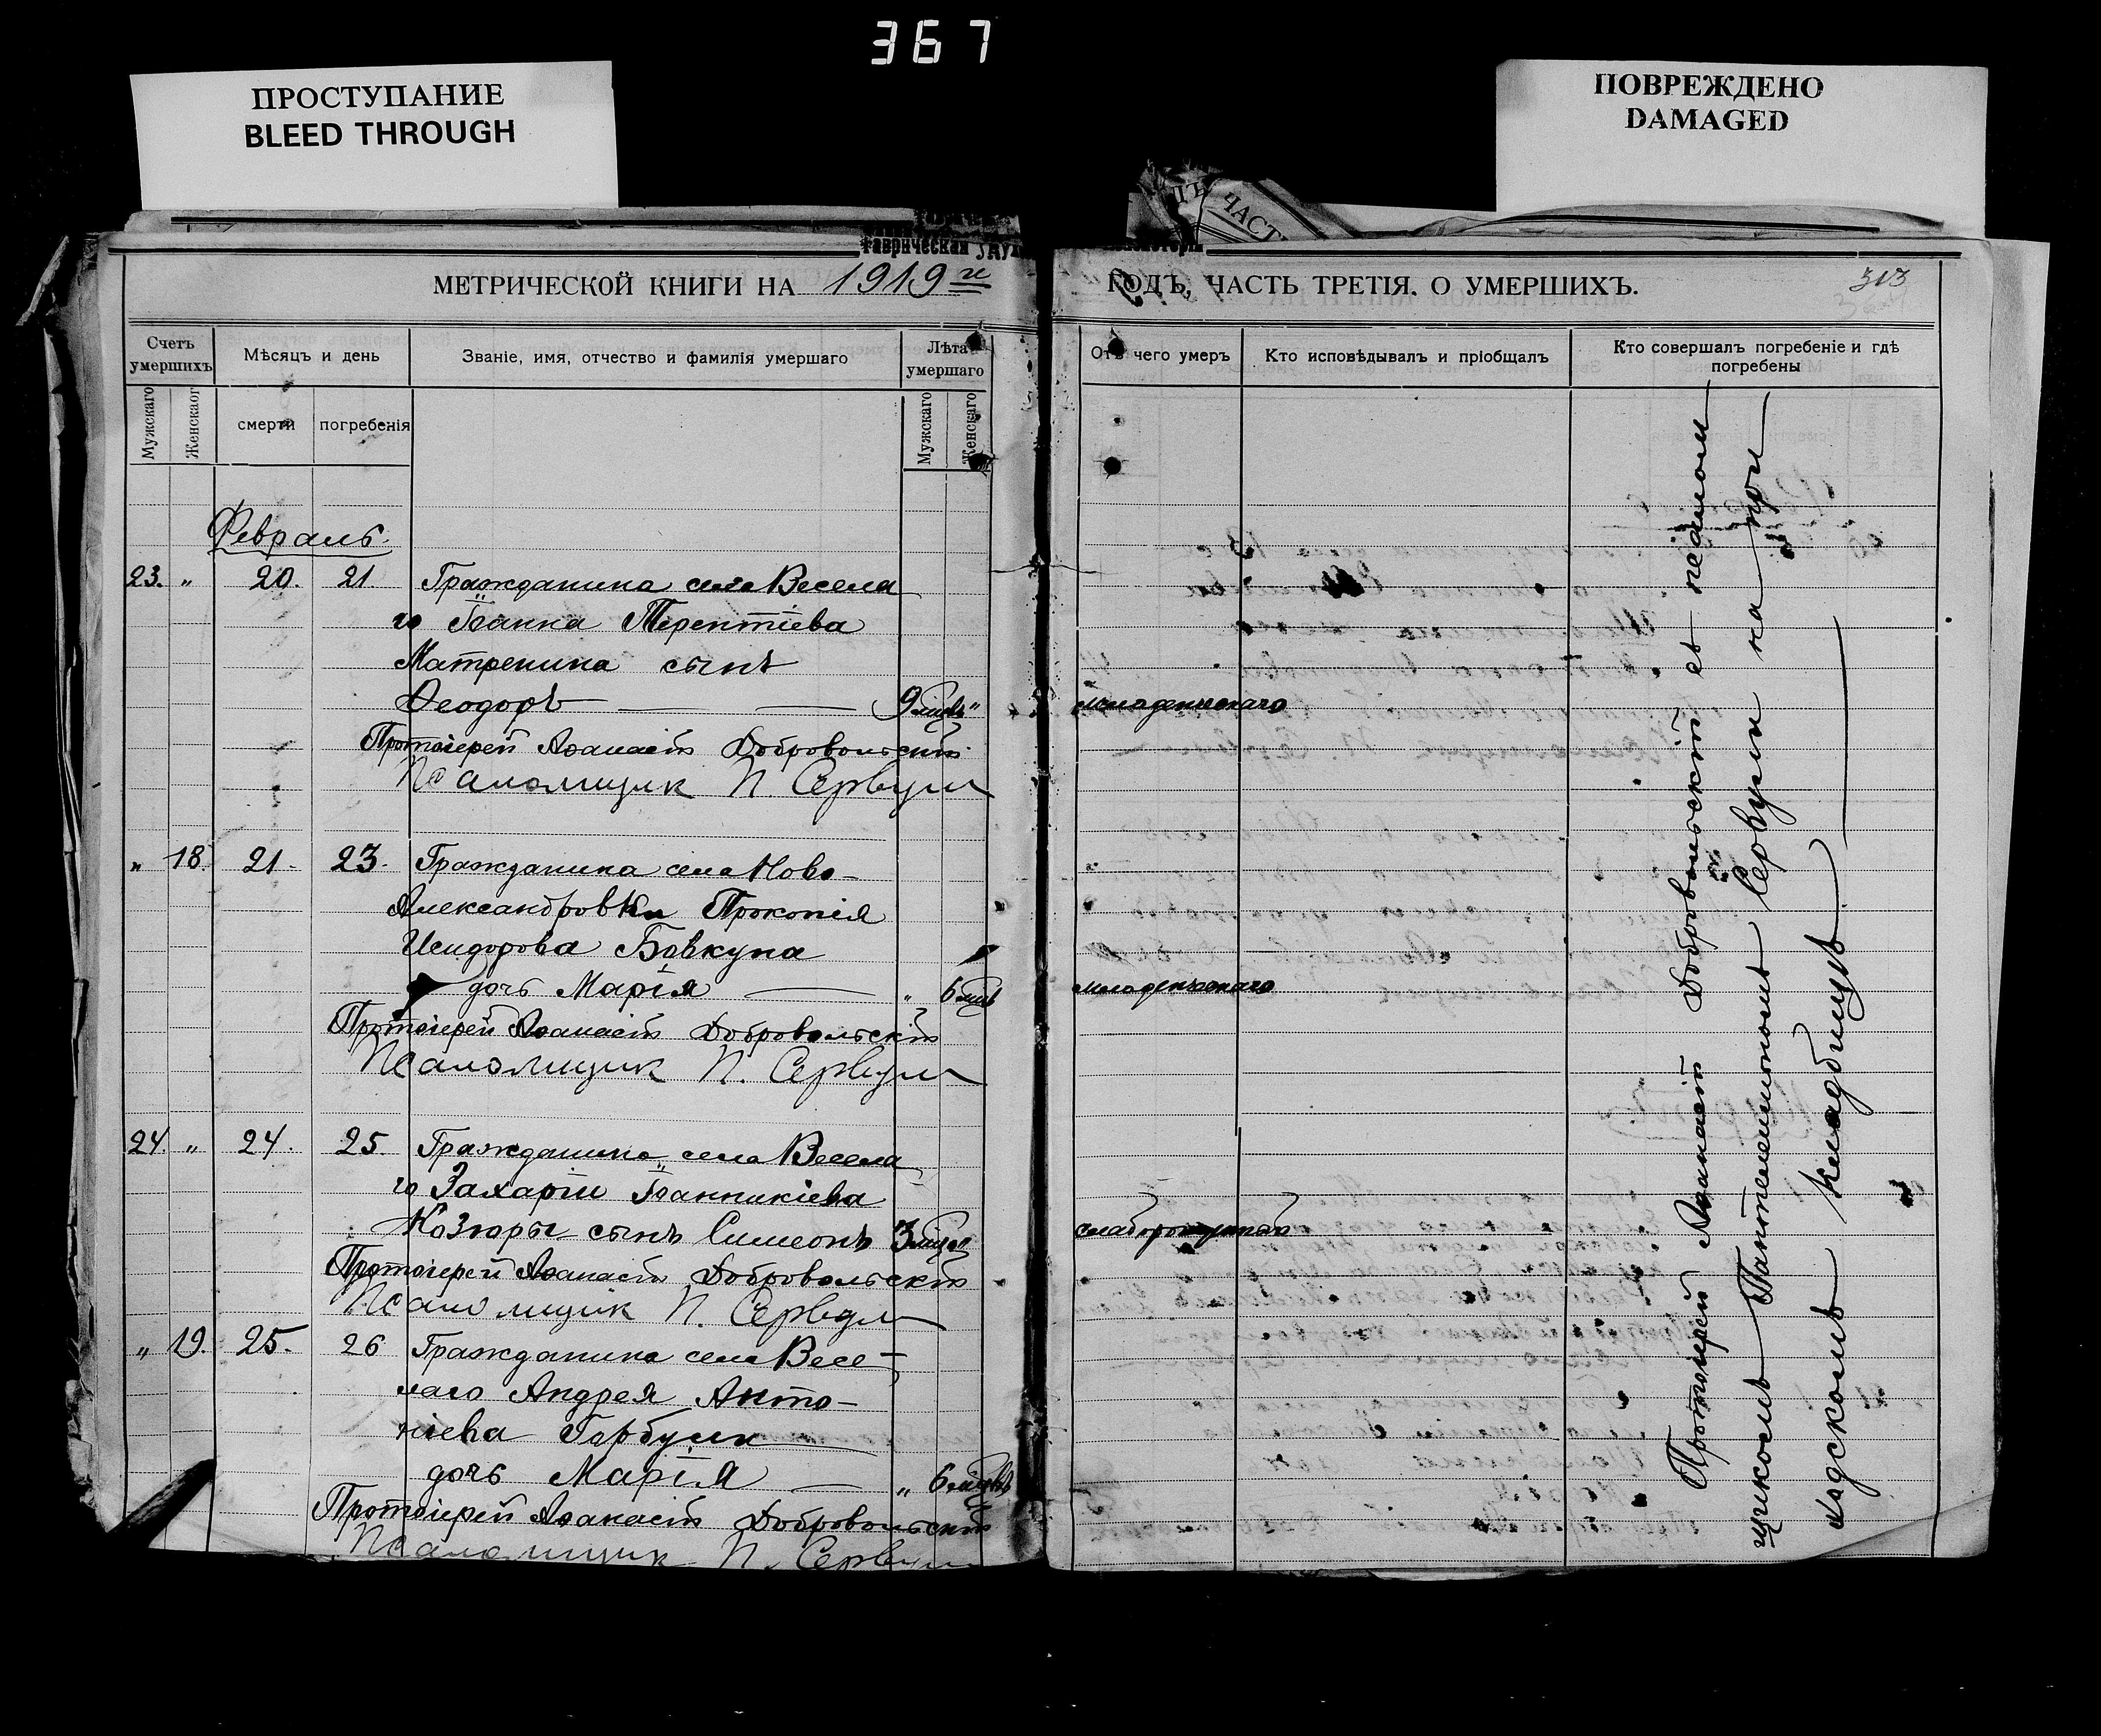 367
ПРОСТУПАНИЕ
BLEED THROUGH
ПОВРЕЖДЕНО
DAMAGED
ТЪ ЧАСТ
Таврическая
МЕТРИЧЕСКОЙ КНИГИ НА 1919 й
Счетъ умершихъ
Мѣсяцъ и день
Званіе, имя, отчество и фамилія умершаго
Лѣта умершаго
Мужскаго
Женскаог
смерти
погребенія
Мужскаго
Женскаго
Февраль.
23. " 20. 21 Гражданина села Весела
го Іоанна Терентіева
Матренина сынъ
Ѳеодоръ — — 9 мцвъ "
Протоіерей Аѳанасій Добровольскій
Псаломщик П. Сервули
" 18. 21. 23. Гражданина села Ново-
Александровки Прокопія
Исидорова Бовкуна
дочь Марія — " 6 мцв
Протоіерей Аѳанасій Добровольскій
Псаломщик П. Сервули
24. " 24. 25. Гражданина села Весела
го Захаріи Іоанникіева
Козюры сынъ Симеонъ 3 мцв "
Протоіерей Аѳанасій Добровольскій
Псаломщик П. Сервули
" 19. 25. 26 Гражданина села Весе-
лаго Андрея Анто-
ніева Горбули —
дочь Марія — " 6 мцвъ
Протоіерей Аѳанасій Добровольскій
Псаломщик П. Сервули
ГОДЪ, ЧАСТЬ ТРЕТІЯ. О УМЕРШИХЪ.
313
Отъ чего умеръ
Кто исповѣдывалъ и пріобщалъ
Кто совершалъ погребеніе и гдѣ погребены
младенческаго
младенческаго
слаборожденный
Протоіерей Аѳанасій Добровольскій съ псалом-
щикомъ Пантелеимономъ Сервули на при-
ходскомъ кладбищѣ. —